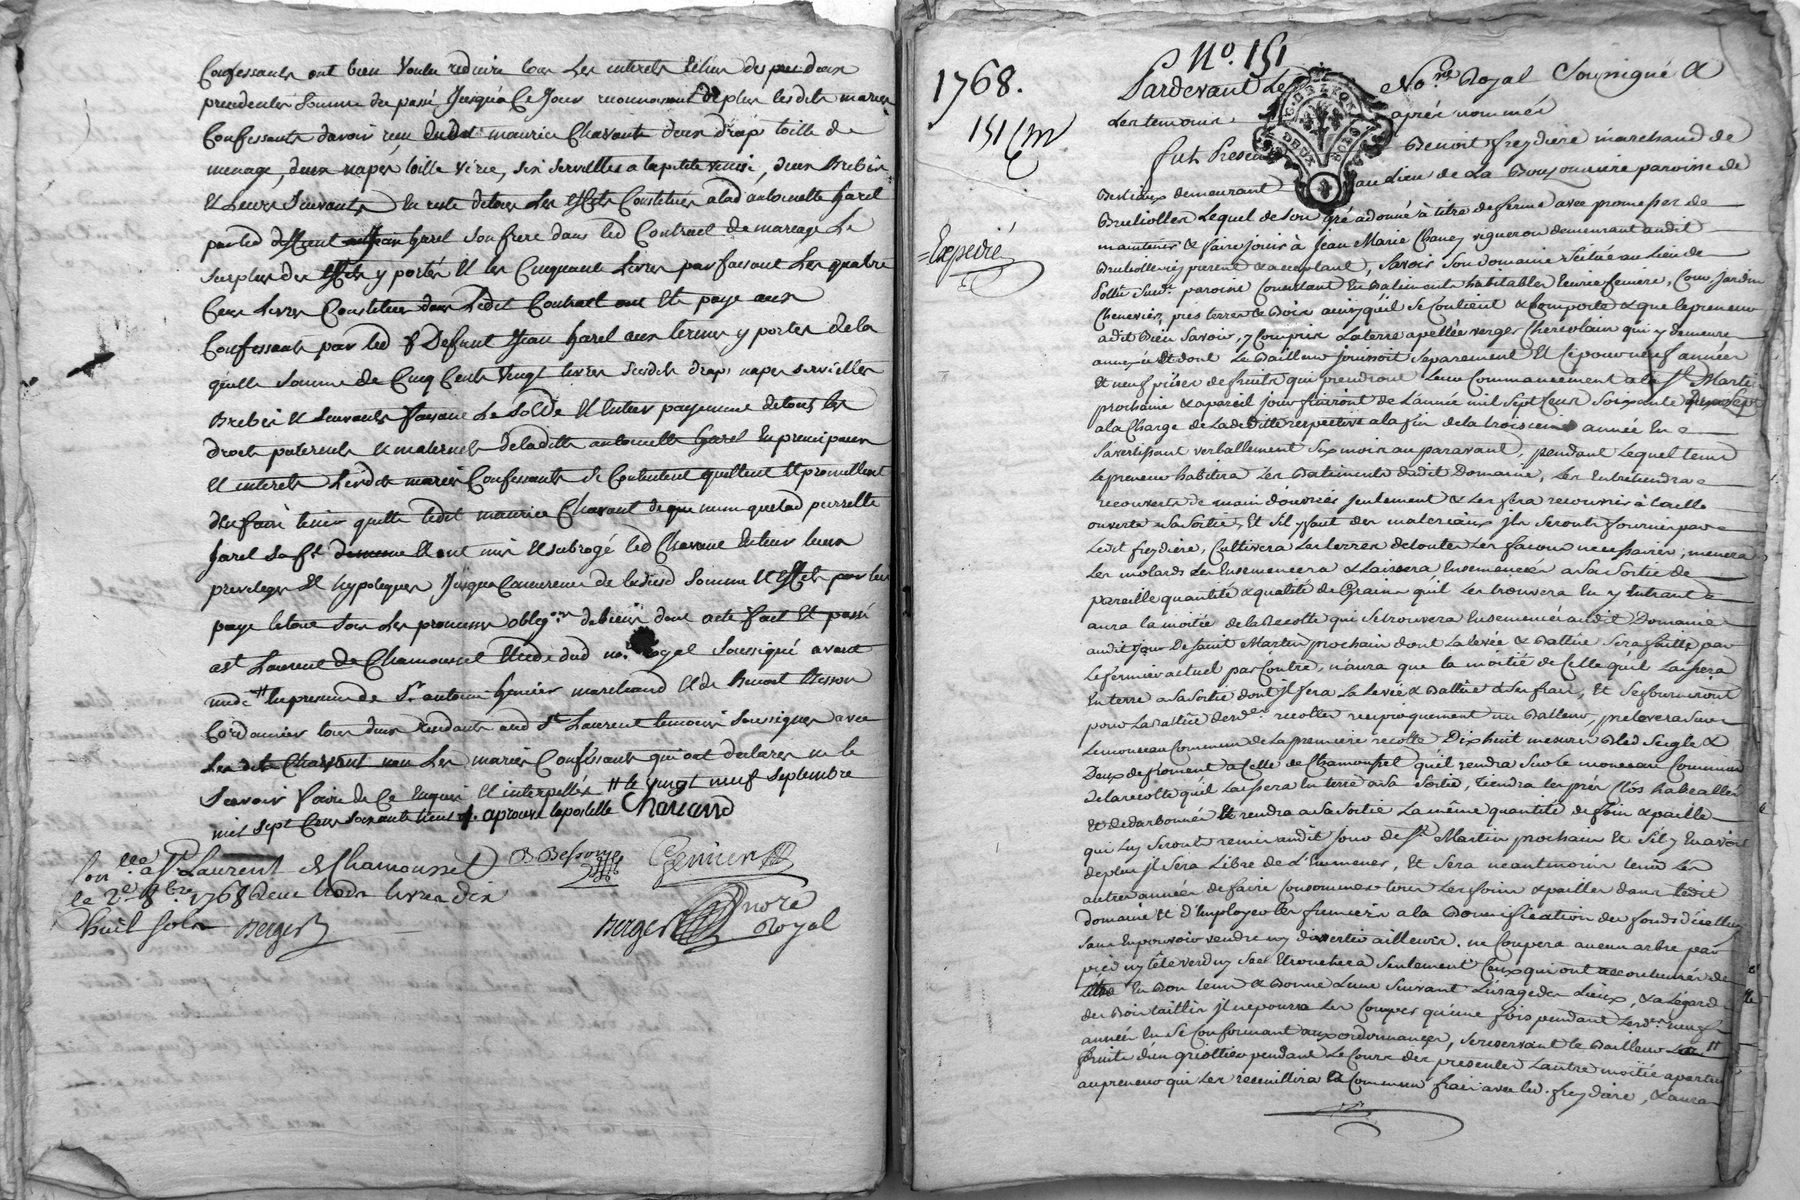 Confessants ont bien voulu reduire tous les interets echus des deux
precedentes somme du passé jusqu'a ce jour reconnoissent de plus lesdits mariés
Confessants davoir reçu dudit maurice Chavant deux draps toille de
menage, deux napes toille , six serviettes a la petite venise, deux Brebis
et leurs suivants en reste de tous les effets Constitués a lad antoinette harel
par led deffunt Jean harel son frere dans led Contract de mariage le
surplus des effets y portés et les Cinquante livres parfaisant les quatre
Cens livres Constituées dans ledit Contract ont eté payé aux
Confessants par led Defunt Jean harel aux termes y portés de la
quelle somme de Cinq Cents vingt livres susdits draps napes serviettes
Brebis et suivants faisant le solde et entier payement de tous les
droits paternels et maternels de ladite antoinette harel en principaux
et interets lesdits mariés Confessants se Contentent quittent et promettent
d'en faire tenir quitte ledit maurice Chavant de que nunquelad pierrette
harel sa fe et ont mis et subrogé led Chavant en tous leurs
privileges et hypoteques jusqua Concurrence de ladite somme et effets par luy
payé le tout sous les promesses oblig.ons de biens dont acte fait et passé
a St Laurent de Chamousset etude dud no.re Royal soussigné avant
midi # en presence de Sr antoine Genier marchand et de Benoit Besson
Cordonnier tous deux residants aud St Laurent temoins soussignés avec
led Chavant non les mariés Confessants qui ont declarés ne le
sçavoir faire de ce enquis et interpellés # le vingt neuf septembre
mil sept Cens soixante huit aprouvé lapostille Chavand
Con.llé a St Laurent de Chamousset B Besson Genier
le 2e 8bre 1768 Reçu trois livres dix
huit sols Berger Berger Nore Royal
No. 151
1768.
151 Cm
Expedié
G. DE LYON
DEUX SOLS
Pardevant Le No.re Royal Soussigné &
Les temoins après nommés
fut Present Benoit freydiere marchand de
Bestiaux demeurant au Lieu de La Bouronniere paroisse de
Brulioles Lequel de son gré a donné à titre de ferme avec promesses de
maintenir & faire jouir à Jean Marie Chanez vigneron demeurant audit
Brulioles present & acceptant, savoir son domaine scitué au lieu de
Pottu susd. paroisse Consistant en Batiments habitables Ecurie feniere, Cour Jardin
Chenevier, prés terres & Bois ainsy qu'il se Contient & Comporte & que le preneur
a dit Bien savoir, y Compris La terre apellée verger qui y demeure
annexée et dont Le Bailleur jouissoit separement et ce pour neuf années
et neuf prises de fruits qui prendront Leur Commancement a la St Martin
prochaine & a pareil jour finiront de L'année mil sept Cent soixante dix sept
a la Charge de La deditte respective a la fin de la troisieme année En
s'avertissant verballement six mois auparavant, pendant Lequel tems
Le preneur habitera Les Batiments dudit Domaine, Les Entretiendra
recouverts de main d'ouvrier seulement & Les fera recouvrir à taille
ouverte a sa sortie, Et s'il y faut des materiaux ils seront fournis par
Ledit freydiere, Cultivera Les terres de toutes Les façons necessaires, menera
Les molards Les Ensemencera & Laissera Ensemencés a sa sortie de
pareille quantité & qualité de Grains qu'il Les trouvera En y Entrant
aura la moitié de la Recolte qui se trouvera Ensemencée audit Domaine
audit jour de saint Martin prochain dont La levée & Battue sera faitte par
Le fermier actuel par Contre, n'aura que la moitié de Celle qu'il Laissera
En terre a sa sortie dont il fera La Levée & Battue a ses frais, Et se fourniront
pour La Battue desd. recoltes reciproquement un Batteur, prelevera sur
Le monceau Commun de La premiere recolte Dixhuit mesures Bled seigle &
Deux de froment a Celle de Chamousset qu'il rendra sur le monceau Commun
de la recolte qu'il Laissera en terre a sa sortie, tiendra Les prés Clos
Et rendra a sa sortie La même quantité de foin & paille
qui Luy seront remis audit jour de St. Martin prochain Et s'il y En avoit
de plus il sera Libre de L'Emmener, Et sera neantmoins tenu Les
autres années de faire Consommer tous Les foins & pailles dans Ledit
domaine Et d'Employer les fumiers a la Bonnification des fonds d'icelluy
sans En pouvoir vendre ny divertir ailleurs. ne Coupera aucun arbre par
pied ny tête verd ny sec Etronchera seulement Ceux qui ont accoutumés de
L'être En Bon tems & Bonne Lune suivant L'usage des Lieux, & a L'égard
des Bois taillis il ne pourra Les Couper qu'une fois pendant Lesd. neuf
années En se Conformant aux ordonnances, se reservant le Bailleur #
fruits d'un griottier pendant Le Cours des presentes L'autre moitié apartiendra
au preneur qui Les receuillira a Commun frais avec led. freydiere, & aura